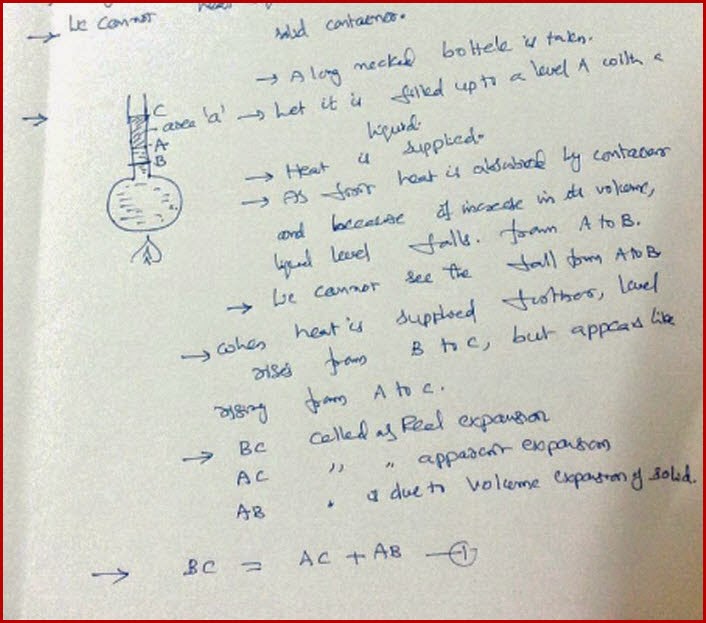 → We cannot
solid container.
→ A long necked bottele is taken.
→ Let it is filled upto a level A with a
liquid.
→ Heat is supplied.
→ As first heat is absorbed by container
and because of increase in its volume,
liquid level falls. from A to B.
→ We cannot see the fall from A to B
→ When heat is supplied further, level
rises from B to C, but appears like
rising from A to C.
→ BC called as Real expansion
AC ,, ,, apparent expansion
AB is due to volume expansion of solid.
→ BC = AC + AB —①
→
C
area 'a'
A
B